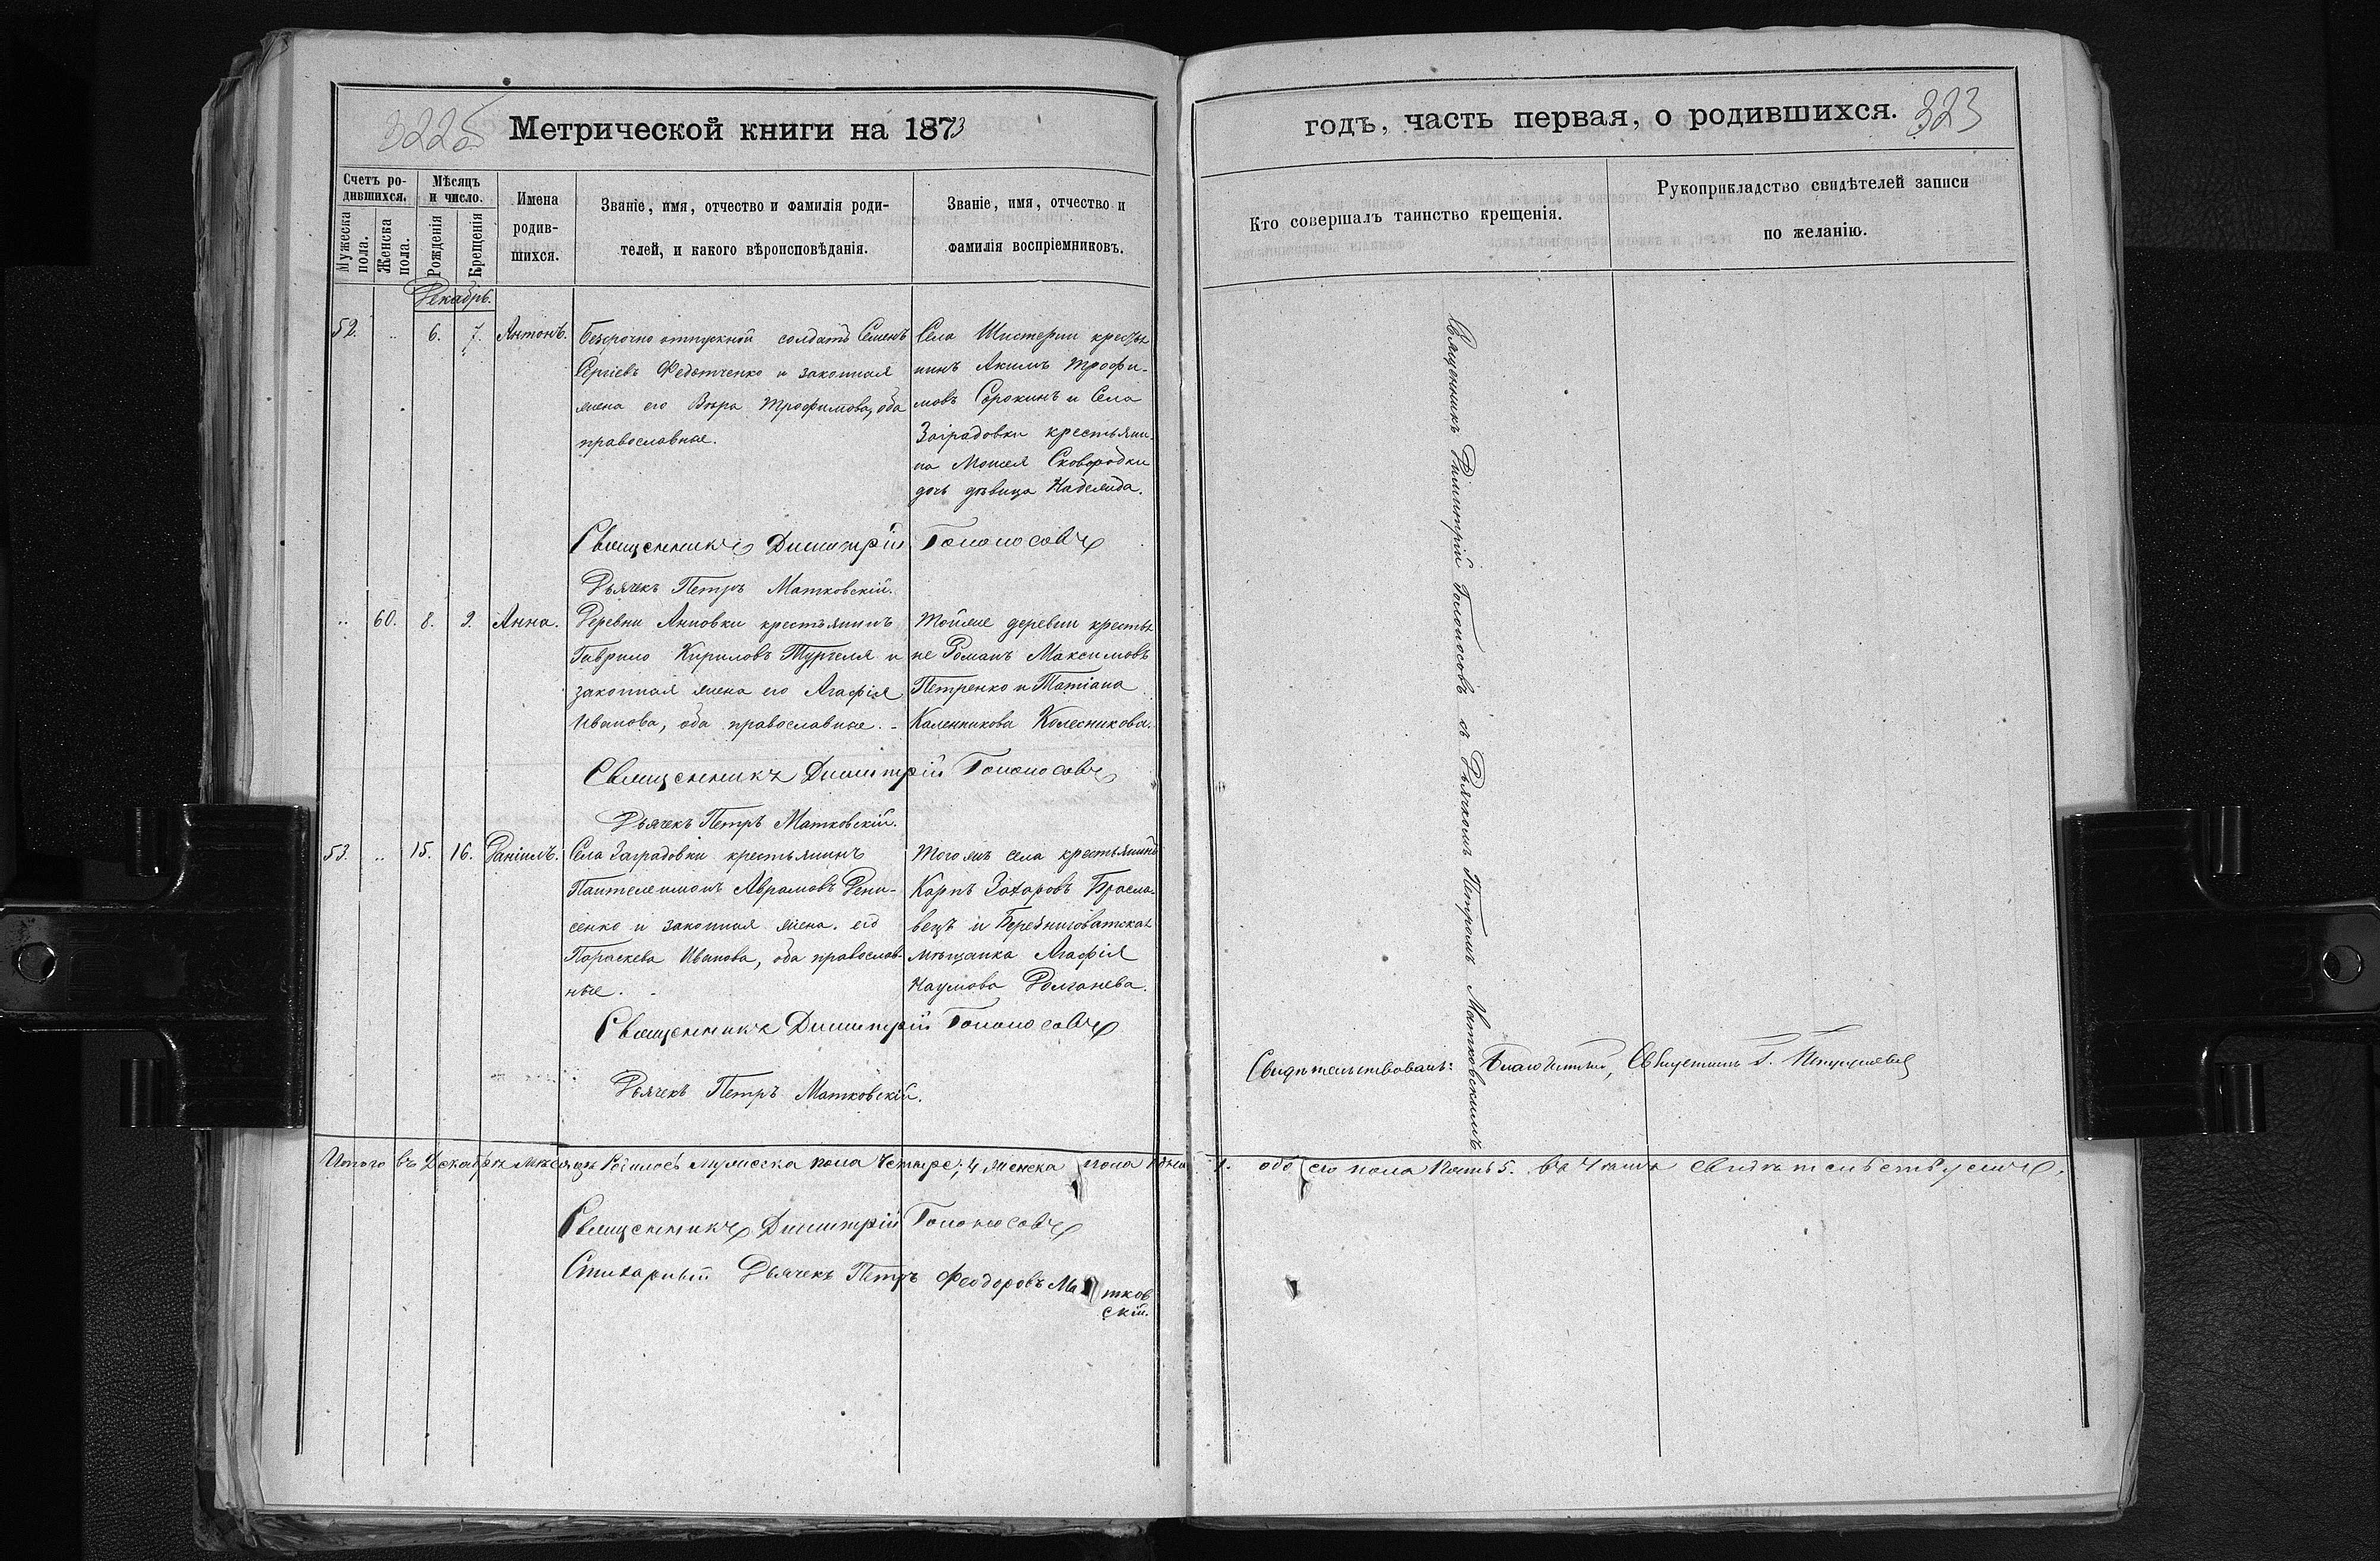 322б Метрической книги на 1873
годъ, часть первая, о родившихся. 323
Счетъ ро-
дившихся.
Мужеска пола.
Женска пола.
Мѣсяцъ
и число.
Рожденія
Крещенія
Имена
родив-
шихся.
Званіе, имя, отчество и фамилія роди-
телей, и какого вѣроисповѣданія.
Званіе, имя, отчество и
фамилія воспріемниковъ.
Кто совершалъ таинство крещенія.
Рукоприкладство свидѣтелей записи
по желанію.
Декабрь.
52. .. 6. 7. Антонъ.
Безсрочно отпускной солдатъ Семенъ
Сергіевъ Федотченко и законная
жена его Вѣра Трофимова, оба
православные.
Села Шистерни крестья
нинъ Акимъ Трофи-
мовъ Сорокинъ и Села
Заградовки крестьяни-
на Моисея Сковородки
дочь дѣвица Надежда.
Священникъ Димитрій Голоносовъ
Дьячекъ Петръ Матковскій.
.. 60. 8. 9. Анна.
Деревни Анновки крестьянинъ
Гаврило Кириловъ и
законная жена его Агафія
Иванова, оба православные.-
Тойже деревни крестья
не Романъ Максимовъ
Петренко и Татіана
Каленникова Колесникова.
Священникъ Димитрій Голоносовъ
Дьячекъ Петръ Матковскій.
53. .. 15. 16. Даніилъ.
Села Заградовки крестьянинъ
Пантелеимонъ Аврамовъ Дени-
сенко и законная жена его
Параскева Иванова, оба православ-
ные.
Тогожъ села крестьянинъ
Карпъ Захаровъ Брасла-
вецъ и Березниговатская
мѣщанка Агафія
Наумова Долганева.
Священникъ Димитрій Голоносовъ
Дьячекъ Петръ Матковскій.
Священникъ Димитрій Голоносовъ съ Дьячкомъ Петромъ Матковскимъ
Свидѣтельствовалъ: Благочинный,
Итого въ Декабрѣ мѣсяцѣ родилось мужеска пола четыре; 4 женска пола одна 1. обоего пола пять 5. въ чемъ и свидѣтельствуемъ.
Священникъ Димитрій Голоносовъ
Стихарный Дьячекъ Петръ Феодоровъ Матков
скій.